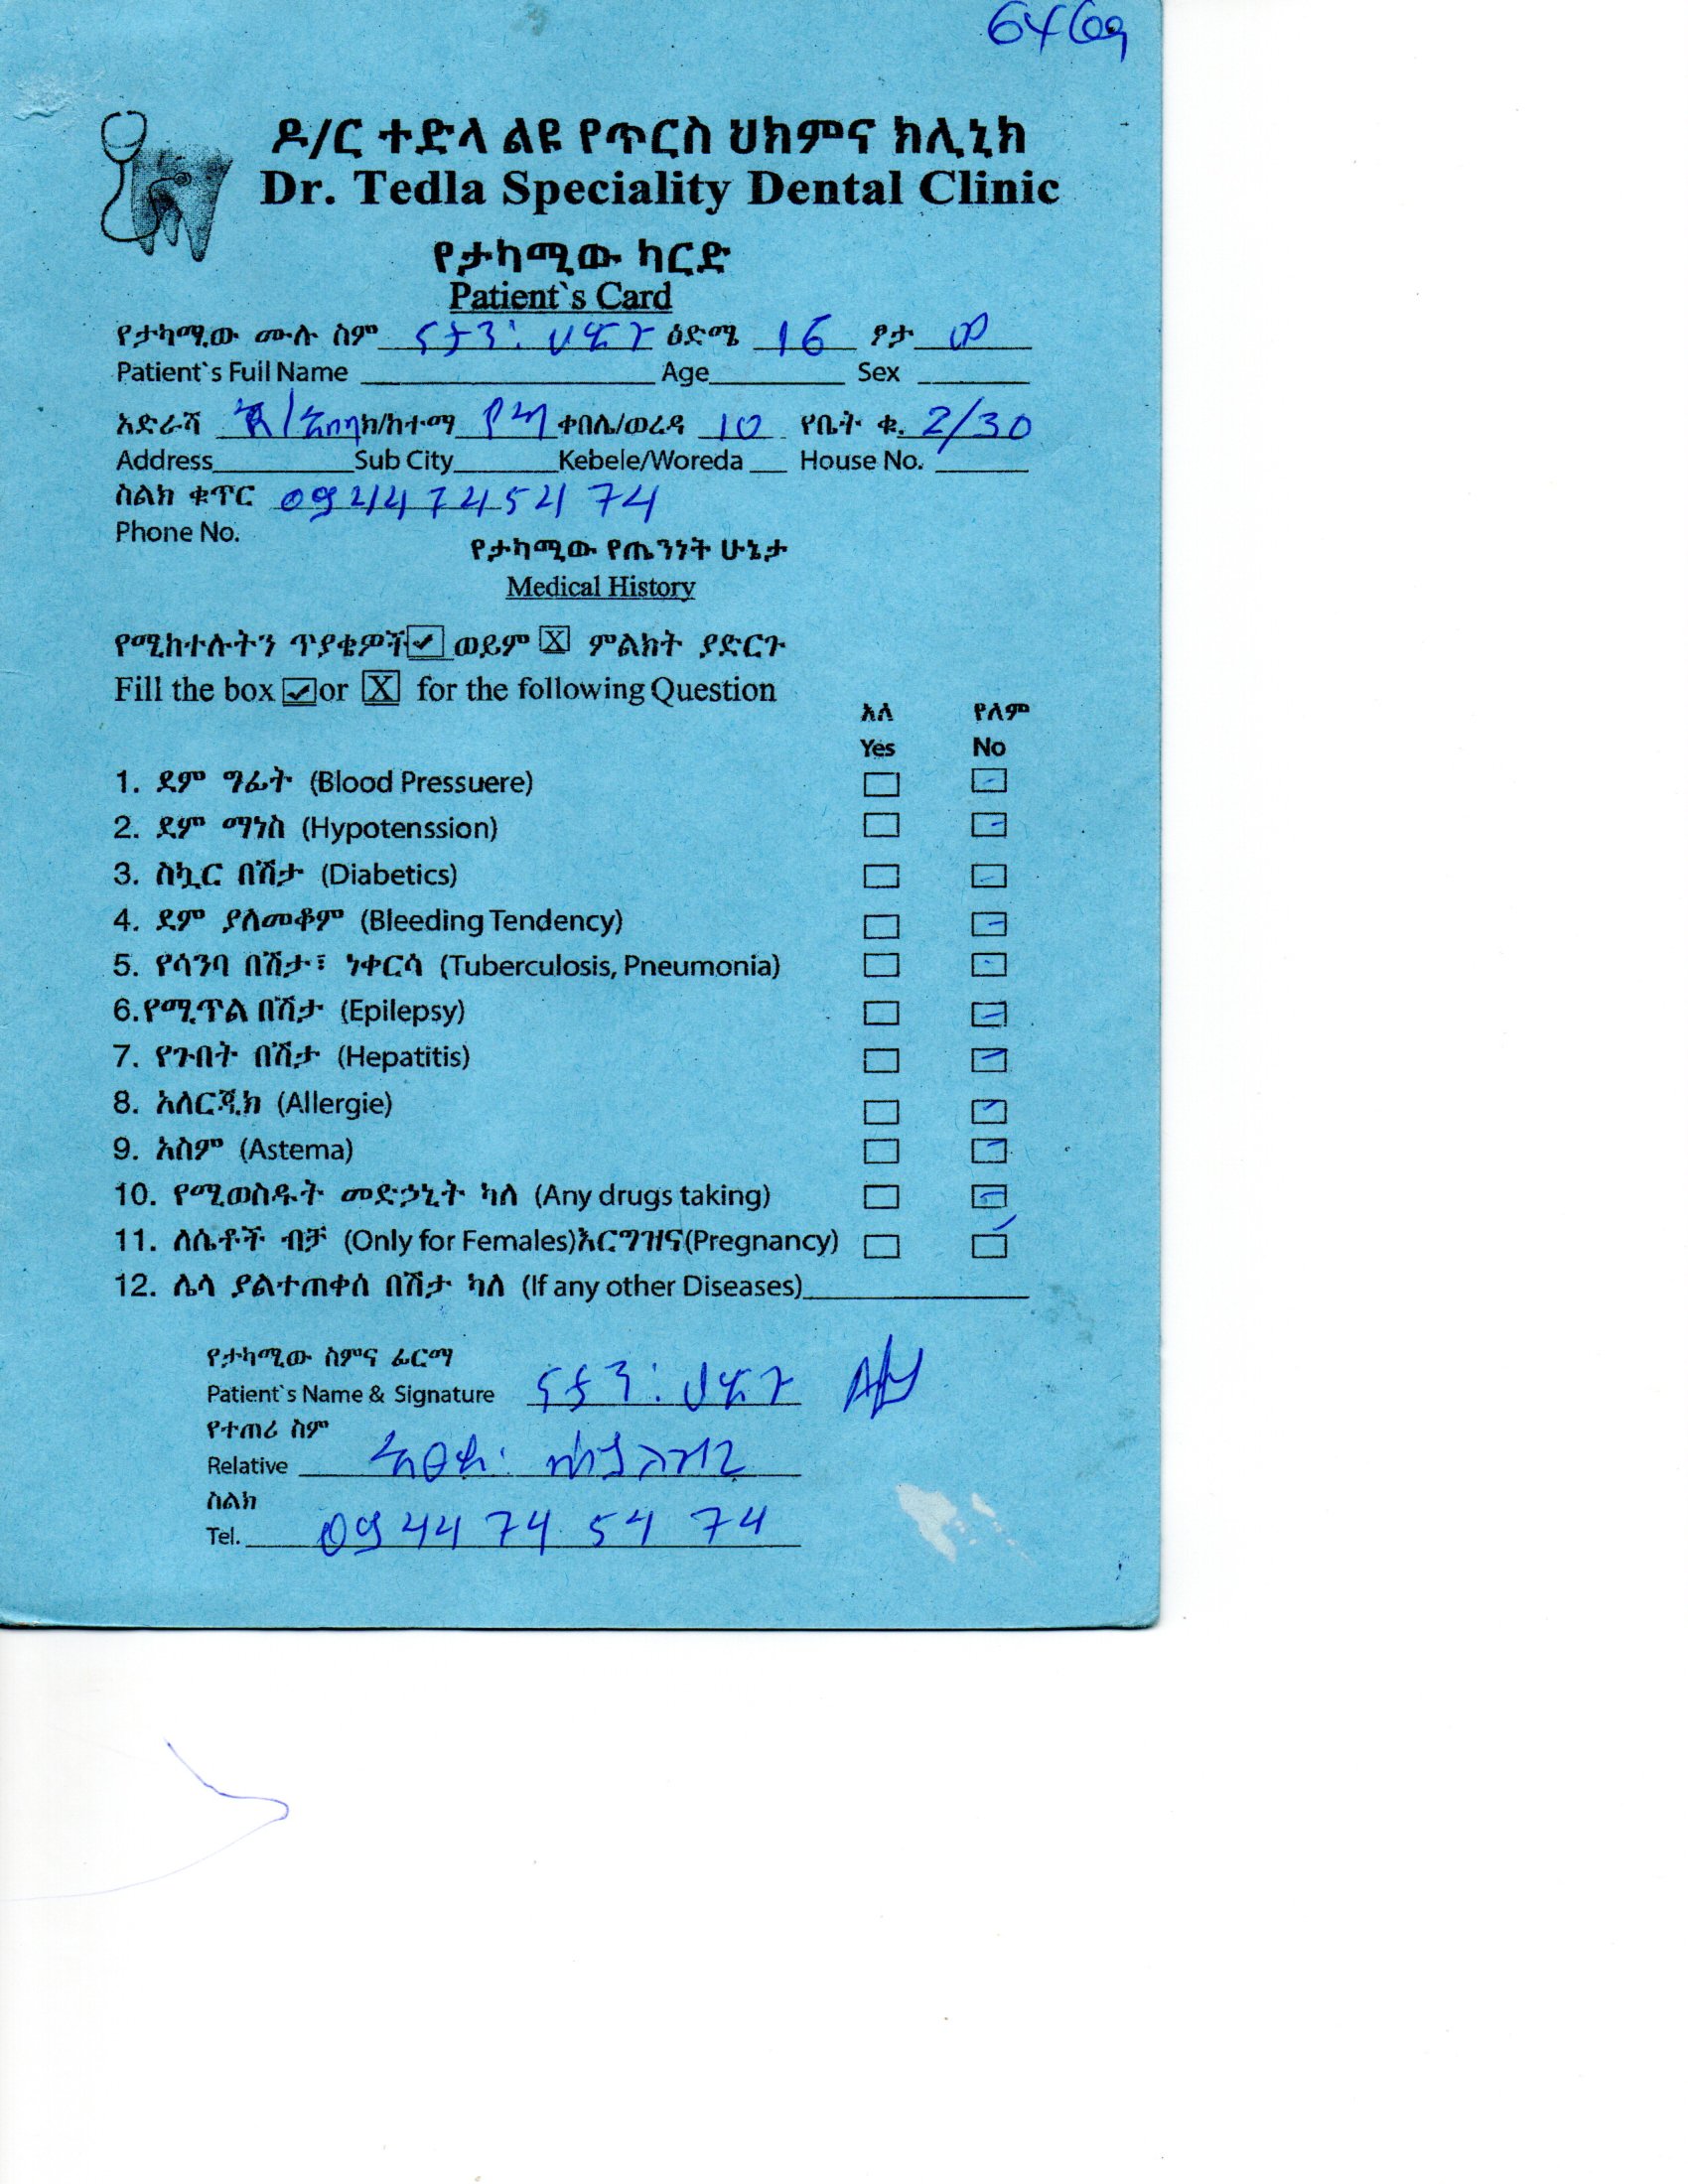 ዶ/ር ተድላ ልዩ የጥርስ ህክምና ክሊኒክ
Dr. Tedla Speciality Dental Clinic
የታካሚው ካርድ
Patient`s Card
የታካሚው ሙሉ ስም ናታን: ዕድሜ 16 ፆታ ወ
Patient`s Full Name Age Sex
አድራሻ ክ/ከተማ የካ ቀበሌ/ወረዳ 10 የቤት ቁ. 2/30
Address Sub City Kebele/Woreda House No.
ስልክ ቁጥር 0944745474
Phone No.
የታካሚው የጤንነት ሁኔታ
Medical History
የሚከተሉትን ጥያቄዎች ወይም X ምልክት ያድርጉ
Fill the box or X for the following Question
አለ የለም
Yes No
1. ደም ግፊት (Blood Pressuere)
2. ደም ማነስ (Hypotenssion)
3. ስኳር በሽታ (Diabetics)
4. ደም ያለመቆም (Bleeding Tendency)
5. የሳንባ በሽታ፣ ነቀርሳ (Tuberculosis, Pneumonia)
6.የሚጥል በሽታ (Epilepsy)
7. የጉበት በሽታ (Hepatitis)
8. አለርጂክ (Allergie)
9. አስም (Astema)
10. የሚወስዱት መድኃኒት ካለ (Any drugs taking)
11. ለሴቶች ብቻ (Only for Females)እርግዝና(Pregnancy)
12. ሌላ ያልተጠቀሰ በሽታ ካለ (If any other Diseases)
የታካሚው ስምና ፊርማ
Patient`s Name & Signature ናታን:
የተጠሪ ስም
Relative
ስልክ
Tel. 0944 74 54 74